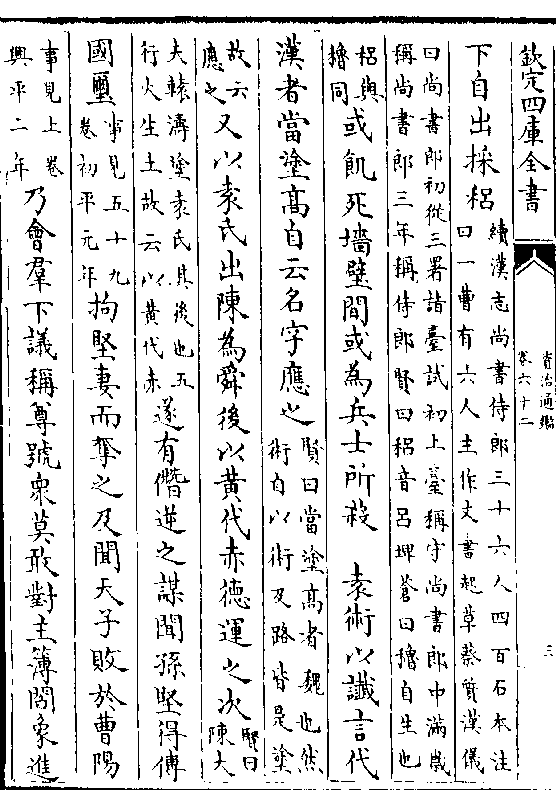 欽定四庫全書
資治通鑑
卷六十二
三
下自出採稆
續漢志尚書侍郎三十六人四百石本注
曰一曹有六人主作文書起草蔡質漢儀
曰尚書郎初從三署詣臺試初上臺稱守尚書郎中滿歲
稱尚書郎三年稱侍郎賢曰稆音呂埤蒼曰穭自生也
稆與
穭同
或飢死墻壁間或為兵士所殺　袁術以讖言代
漢者當塗高自云名字應之
賢曰當塗高者魏也然
術自以術及路皆是塗
故云
應之
又以袁氏出陳為舜後以黃代赤德運之次
賢曰
陳大
夫轅濤塗袁氏其後也五
行火生土故云以黃代赤
遂有僭逆之謀聞孫堅得傳
國璽
事見五十九
卷初平元年
拘堅妻而奪之及聞天子敗於曹陽
事見上卷
興平二年
乃會羣下議稱尊號衆莫敢對主簿閻象進